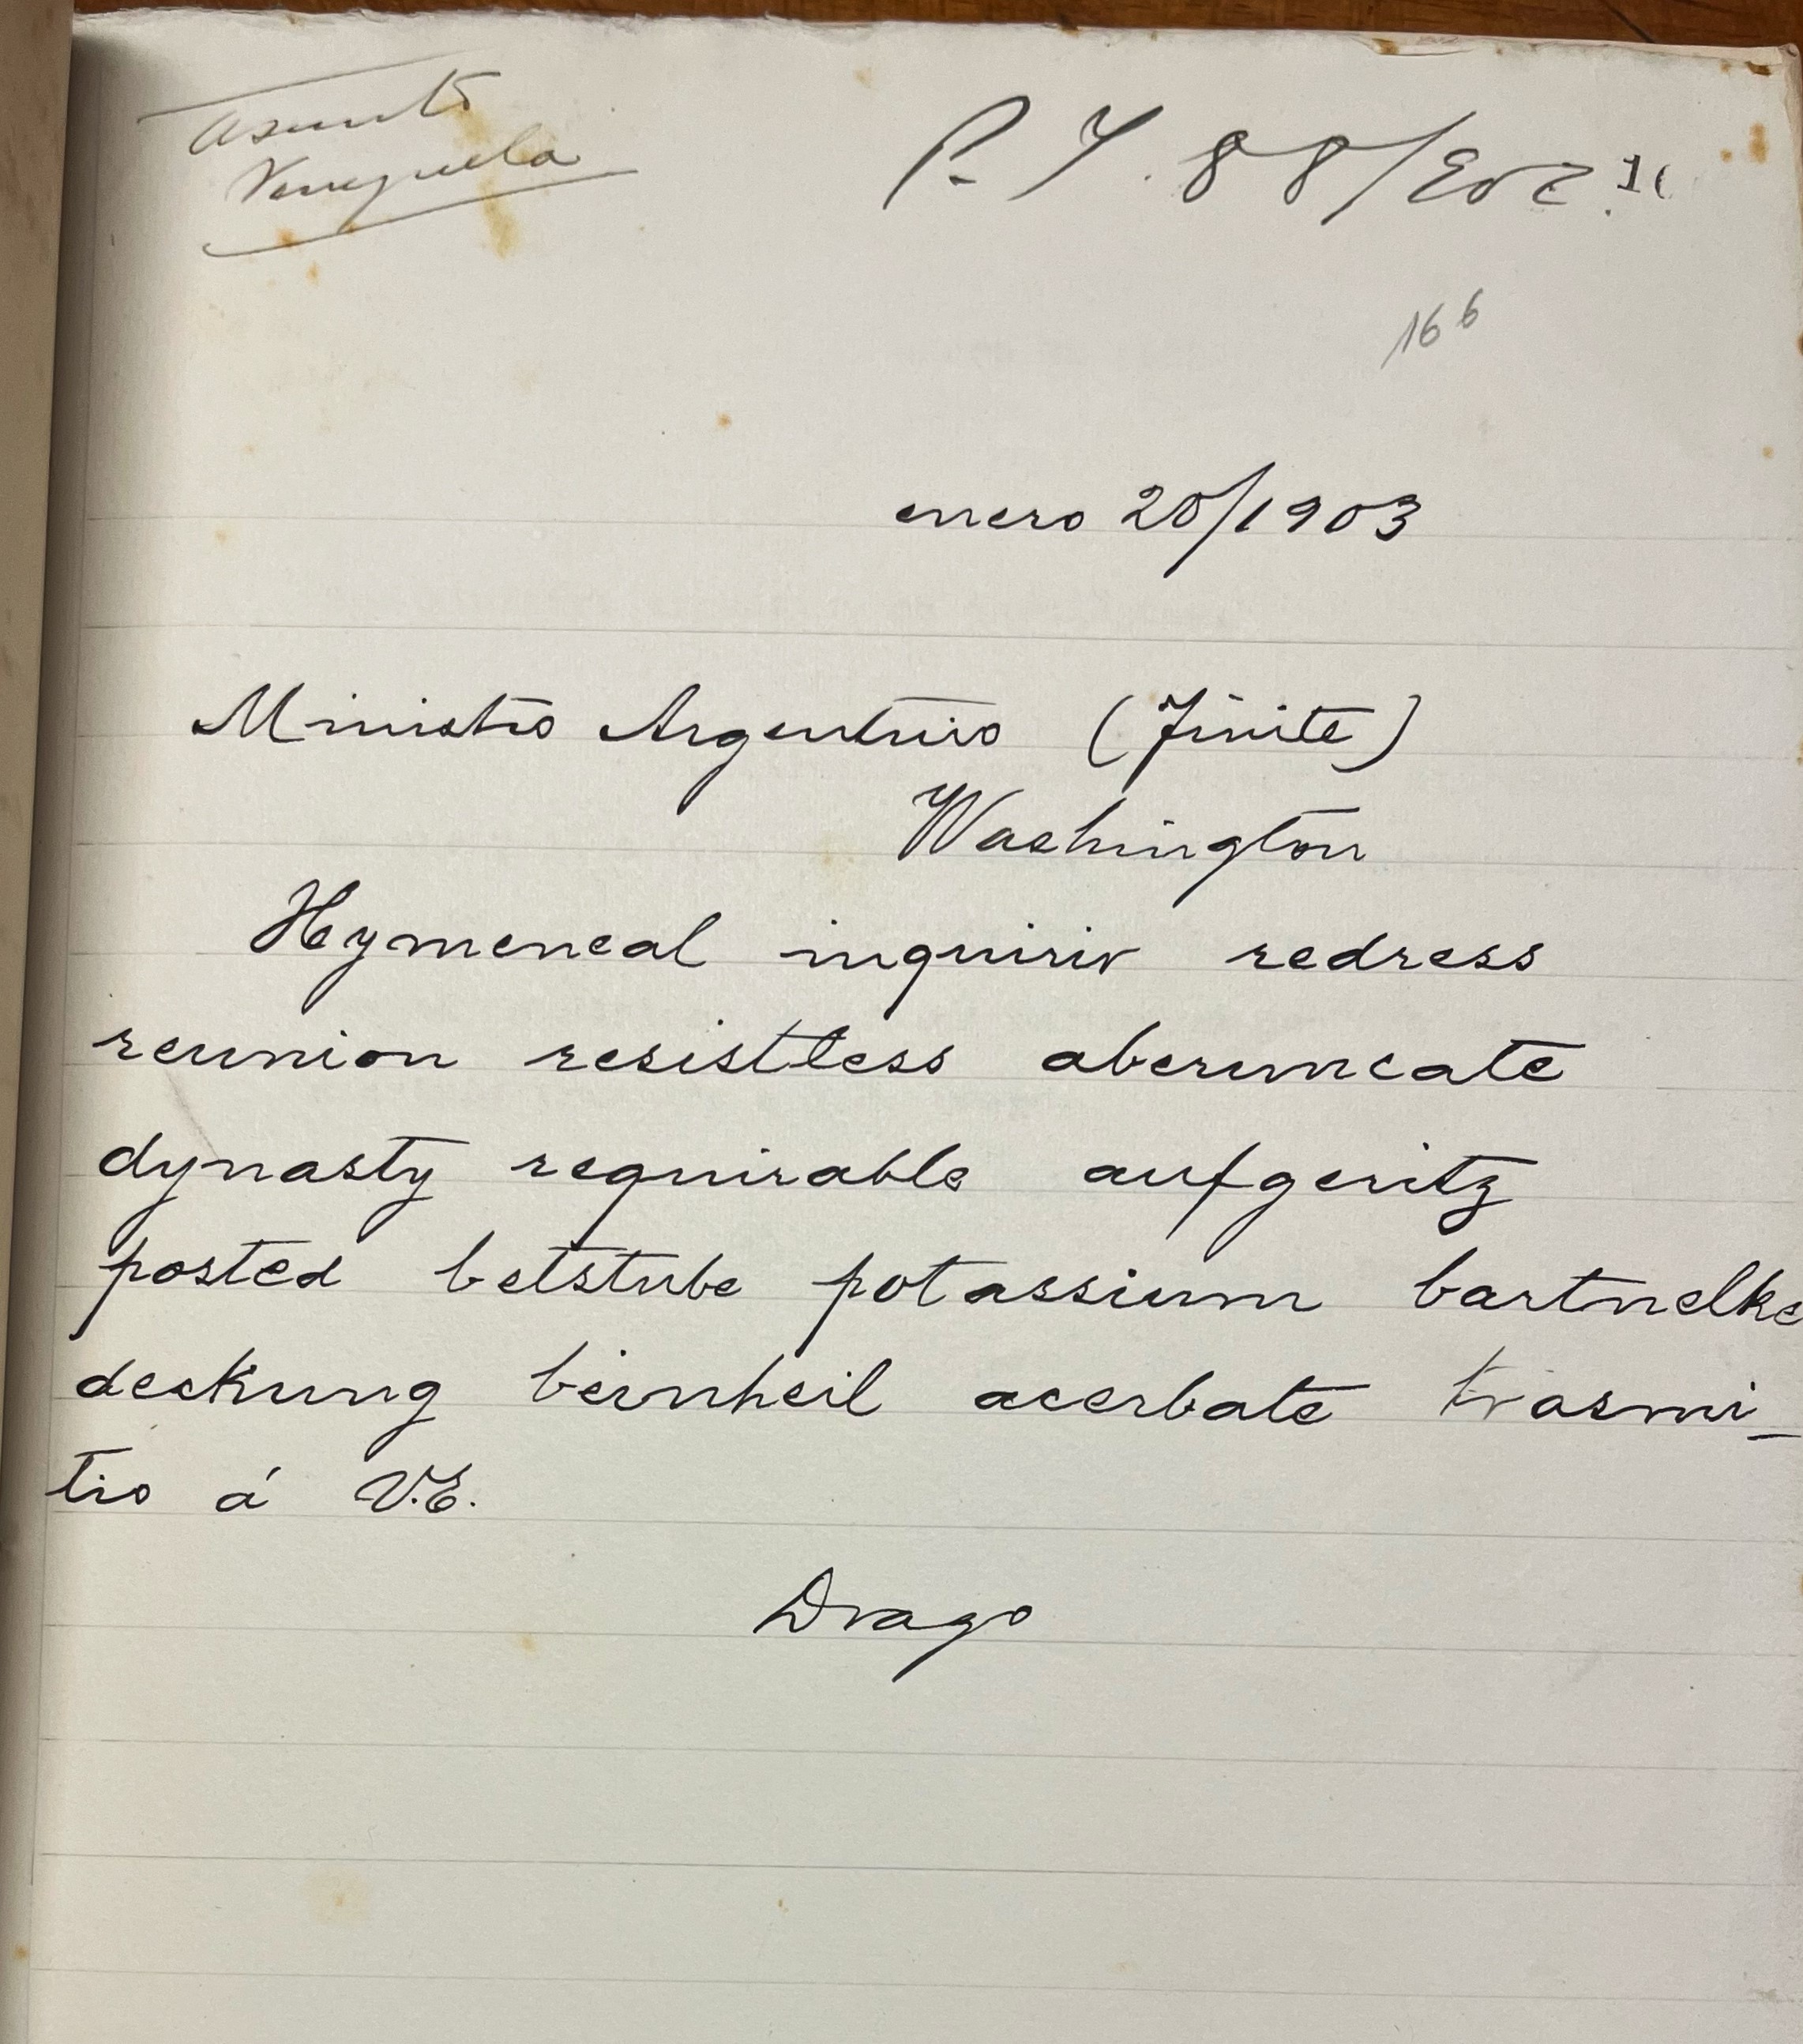 Asunto
Venezuela
P. Y. 88/902
166
enero 20/1903
Ministro Argentino (Finite)
Washington
Hymeneal inquiriv redress
reunion resistless aberuncate
dynasty requirable aufgeritz
posted betstube potassium bartnelke
deckung beinheil acerbate trasmi-
tio á V.E.
Drago